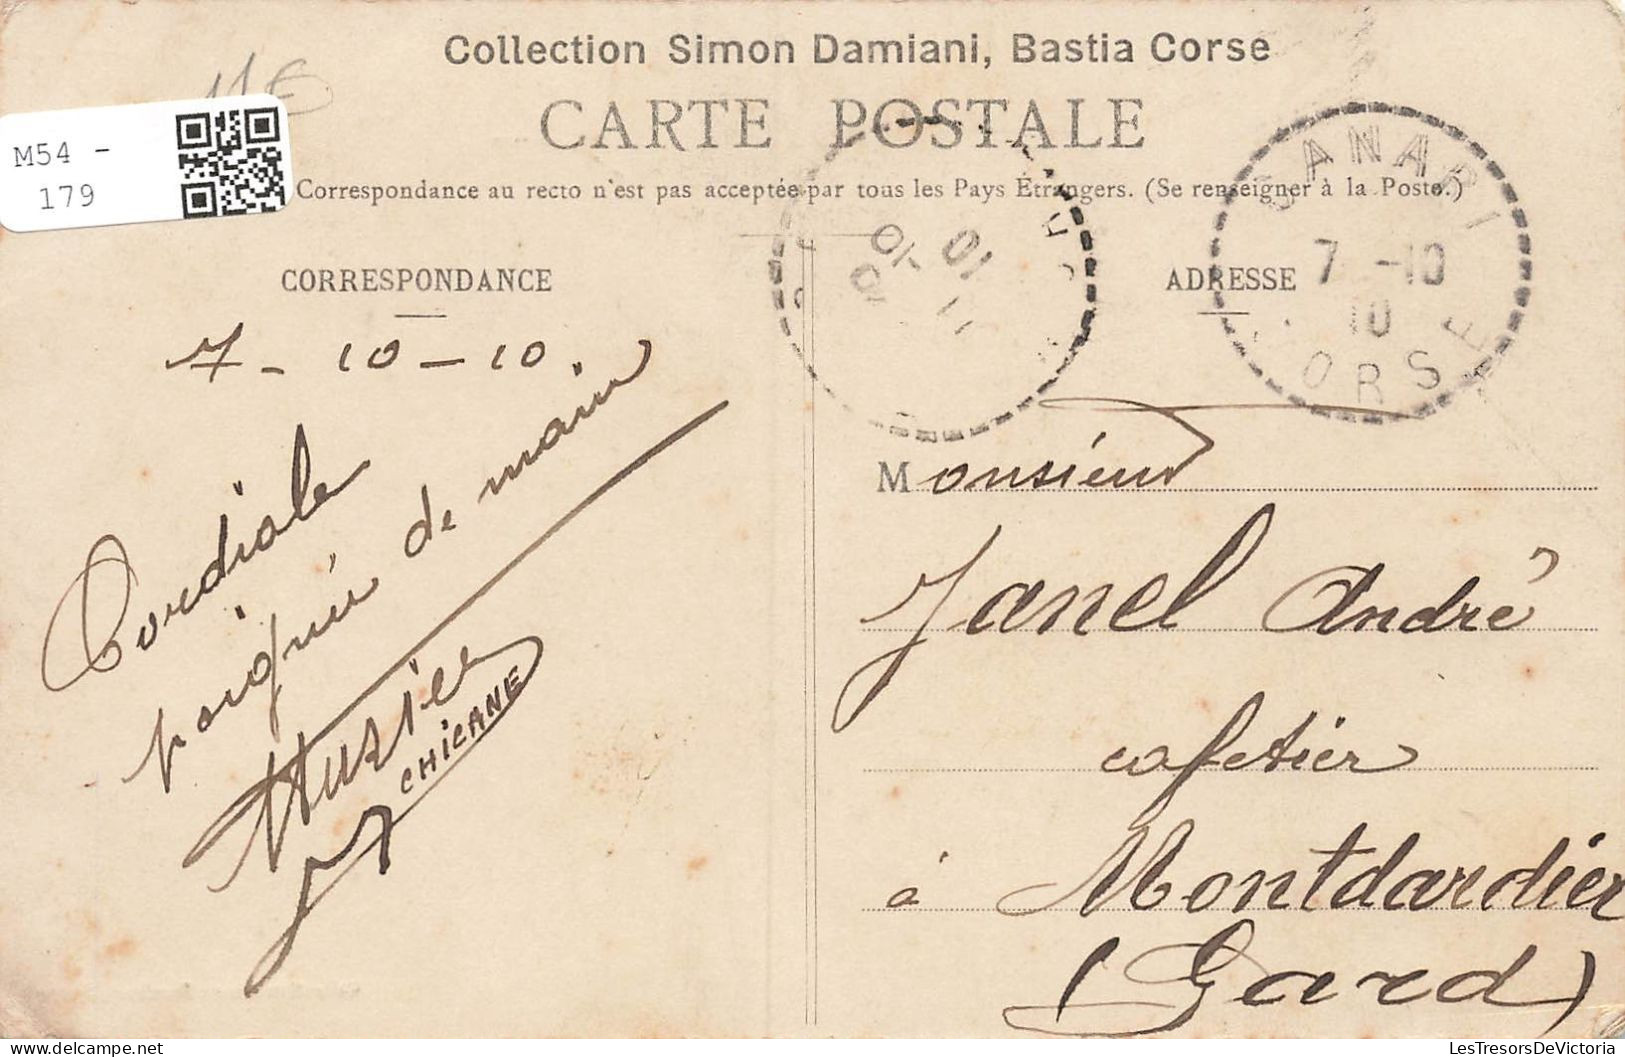 Collection Simon Damiani, Bastia Corse
11€
CARTE POSTALE
M54 -
179
Correspondance au recto n'est pas acceptée par tous les Pays Étrangers. (Se renseigner à la Poste.)
CORRESPONDANCE
7 - 10 - 10.
Cordiale
poignée de main
CHICANE
ADRESSE
7 -10
10
ORSE
Monsieur
Janel André
cafetier
à Montdardier
(Gard)
LesTresorsDeVictoria
www.delcampe.net